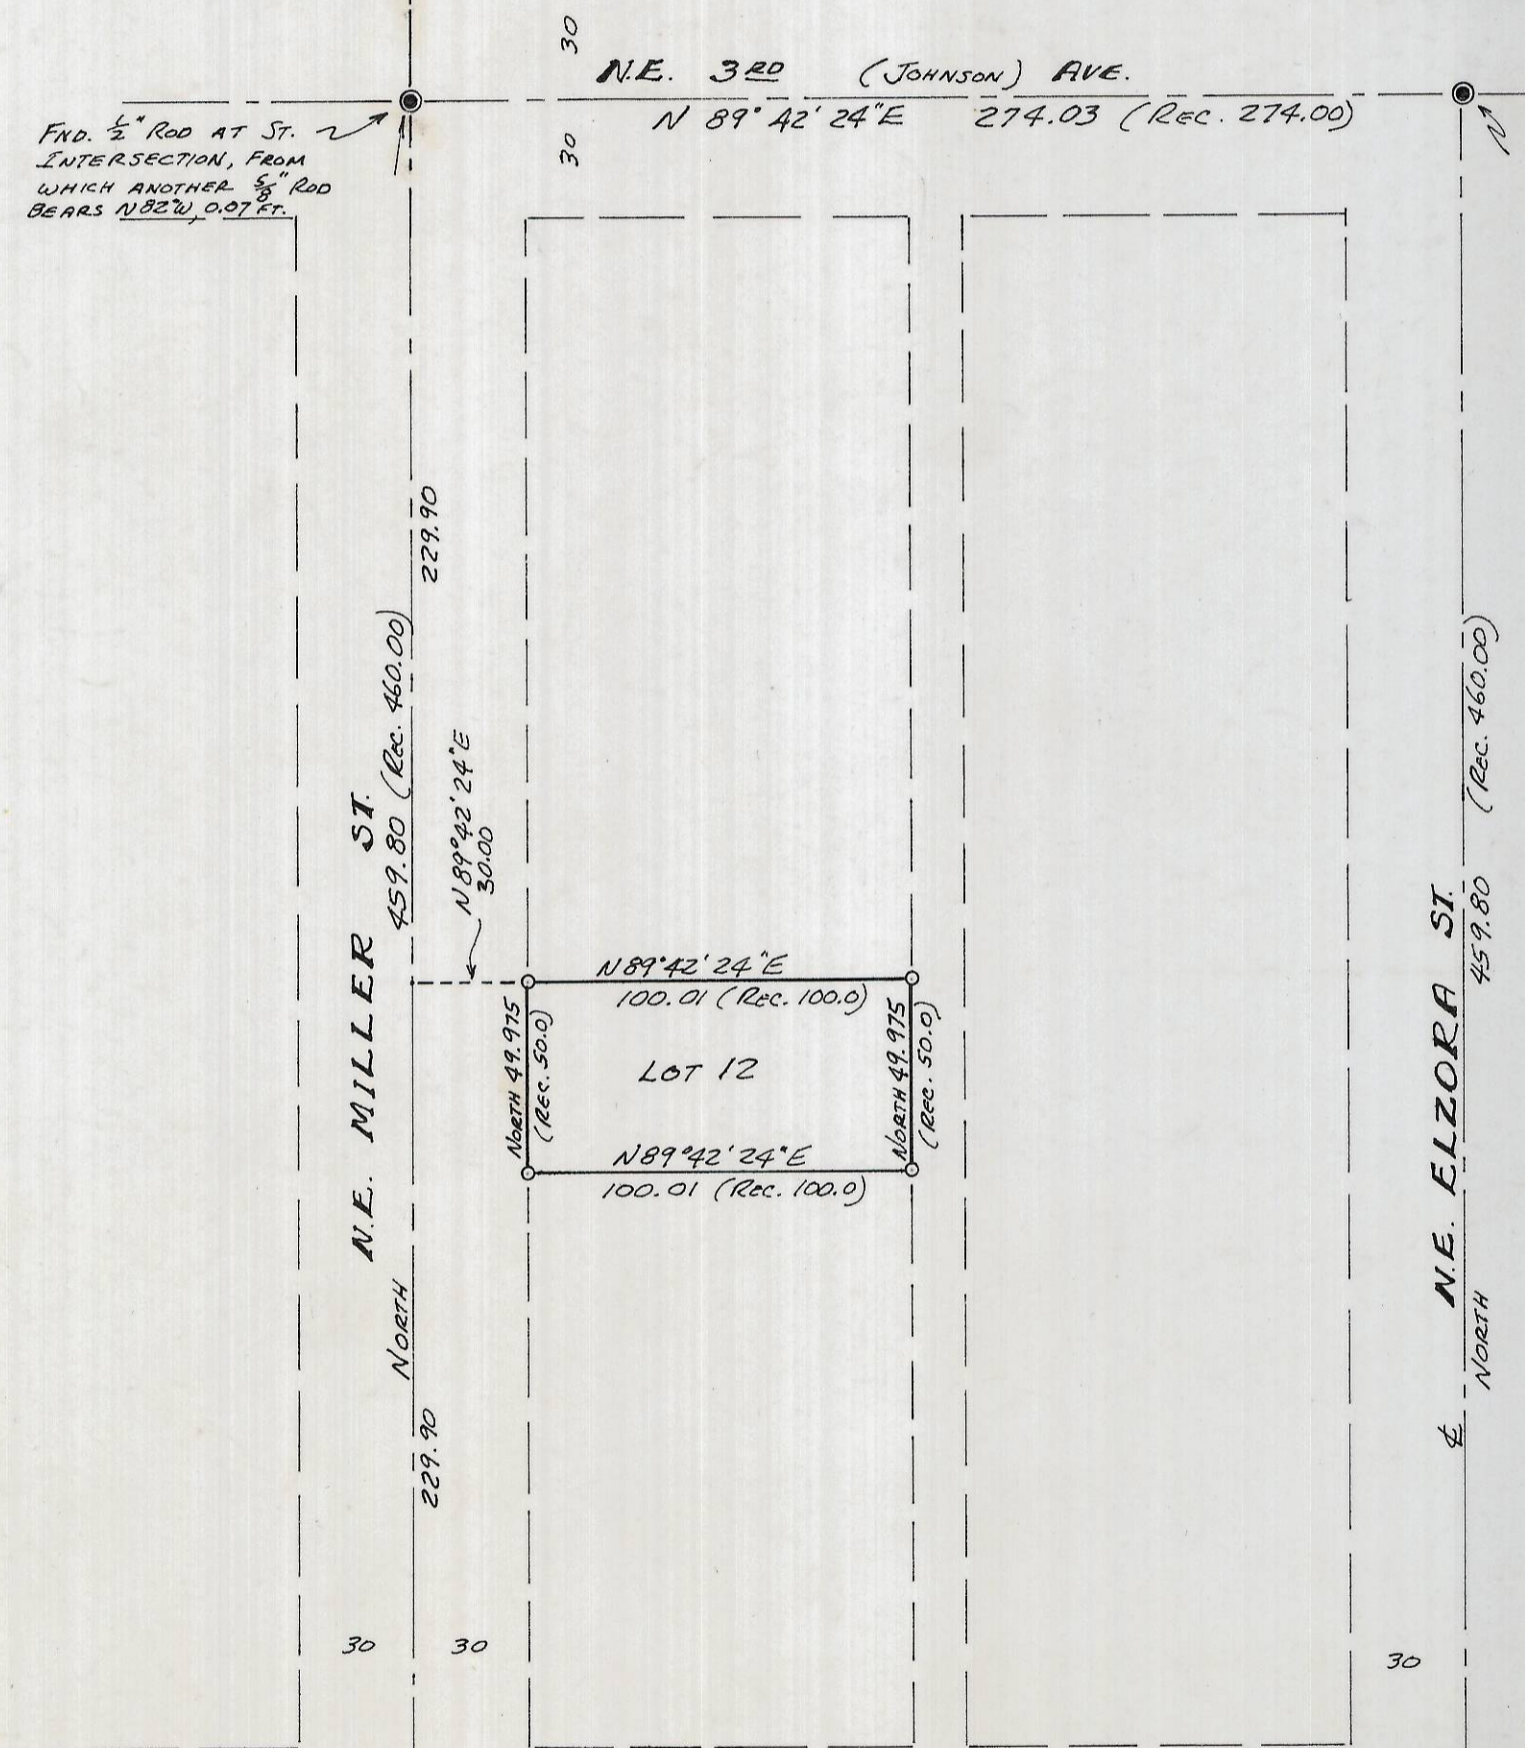 30
N.E. 3RD (JOHNSON) AVE.
N 89° 42' 24"E 274.03 (REC. 274.00)
30
FND. 1/2" ROD AT ST.
INTERSECTION, FROM
WHICH ANOTHER 5/8" ROD
BEARS N82°W, 0.07 FT.
229.90
459.80 (REC. 460.00)
N89°42'24"E
30.00
N.E. MILLER ST.
NORTH
229.90
N89°42'24"E
100.01 (REC. 100.0)
NORTH 49.975
(REC. 50.0)
LOT 12
NORTH 49.975
(REC. 50.0)
N89°42'24"E
100.01 (REC. 100.0)
℄ N.E. ELZORA ST.
NORTH 459.80 (REC. 460.00)
30
30
30